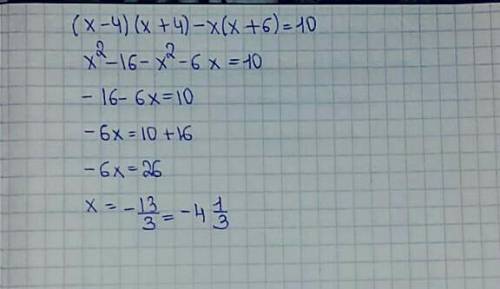 (x-4)(x+4)-x(x+6)=10
x²-16-x²-6x=10
-16-6x=10
-6x=10+16
-6x=26
x=-13/3=-4 1/3